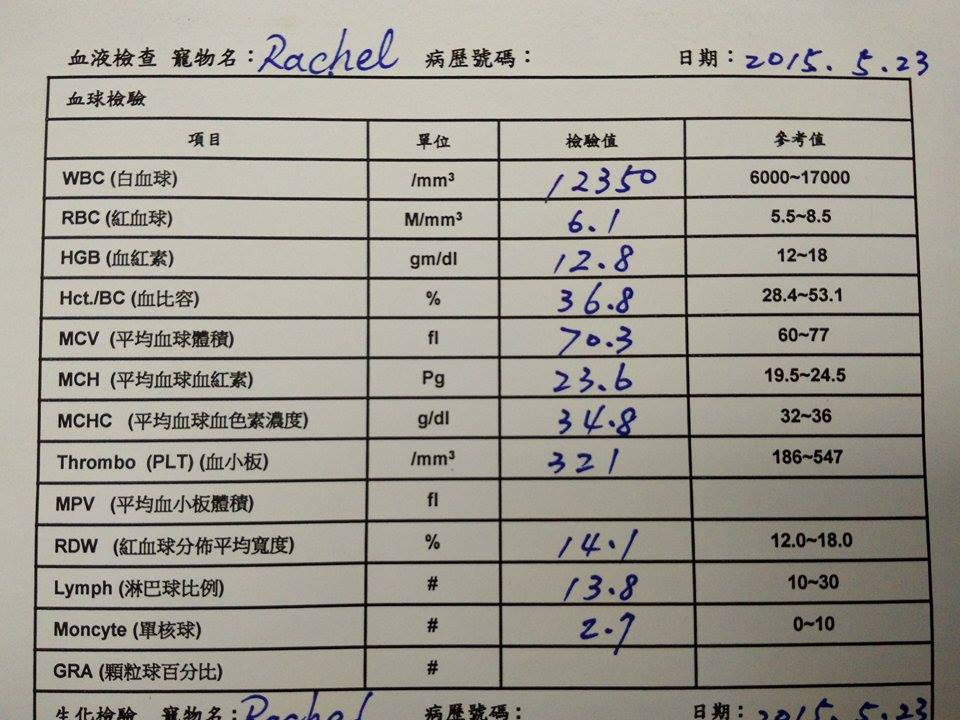 血液檢查 寵物名：Rachel 病歷號碼： 日期：2015. 5.23
血球檢驗
項目 單位 檢驗值 參考值
WBC (白血球) /mm³ 12350 6000~17000
RBC (紅血球) M/mm³ 6.1 5.5~8.5
HGB (血紅素) gm/dl 12.8 12~18
Hct./BC (血比容) % 36.8 28.4~53.1
MCV (平均血球體積) fl 70.3 60~77
MCH (平均血球血紅素) Pg 23.6 19.5~24.5
MCHC (平均血球血色素濃度) g/dl 34.8 32~36
Thrombo (PLT) (血小板) /mm³ 321 186~547
MPV (平均血小板體積) fl
RDW (紅血球分佈平均寬度) % 14.1 12.0~18.0
Lymph (淋巴球比例) # 13.8 10~30
Moncyte (單核球) # 2.7 0~10
GRA (顆粒球百分比) #
生化檢驗 寵物名：Rachel 病歷號碼： 日期：2015.5.23